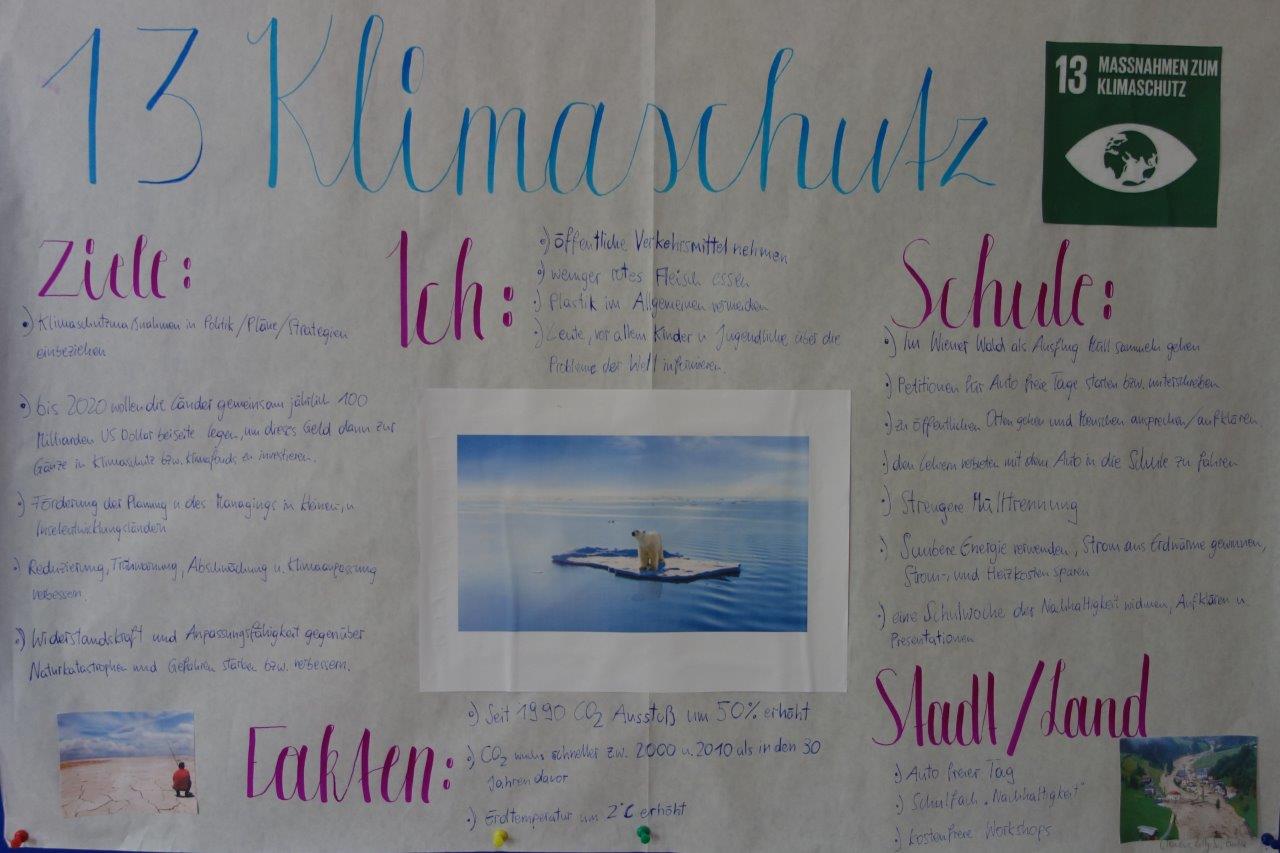 13 Klimaschutz
13 MASSNAHMEN ZUM
KLIMASCHUTZ
Ziele:
•) Klimaschutzmaßnahmen in Politik/Pläne/Strategien
einbeziehen
•) bis 2020 wollen die Länder gemeinsam jährlich 100
Milliarden US Dollar beiseite legen, um dieses Geld dann zur
Gänze in Klimaschutz bzw. Klimafonds zu investieren.
•) Förderung der Planung u des Managings in kleinen-, u
Inselentwicklungsländern
•) Reduzierung, Abschwächung u. Klimaanpassung
verbessern.
•) Widerstandskraft und Anpassungsfähigkeit gegenüber
Naturkatastrophen und Gefahren stärken bzw. verbessern.
Ich:
•) öffentliche Verkehrsmittel nehmen
•) weniger rotes Fleisch essen
•) Plastik im Allgemeinen vermeiden
•) Leute, vor allem Kinder u Jugendliche über die
Probleme der Welt informieren.
Schule:
•) Im Wiener Wald als Ausflug Müll sammeln gehen
•) Petitionen für Auto freie Tage starten bzw. unterschreiben
•) zu öffentlichen Orten gehen und Menschen ansprechen/aufklären.
•) den Lehrern verbieten mit dem Auto in die Schule zu fahren
•) Strengere Mülltrennung
•) Saubere Energie verwenden, Strom aus Erdwärme gewinnen,
Strom-, und Heizkosten sparen
•) eine Schulwoche der Nachhaltigkeit widmen, Aufklären u
Presentationen
Fakten:
•) Seit 1990 CO2 Ausstoß um 50% erhöht
•) CO2 wuchs schneller zw. 2000 u. 2010 als in den 30
Jahren davor
•) Erdtemperatur um 2°C erhöht
Stadt/Land
•) Auto freier Tag
•) Schulfach „Nachhaltigkeit"
•) kostenfreie Workshops